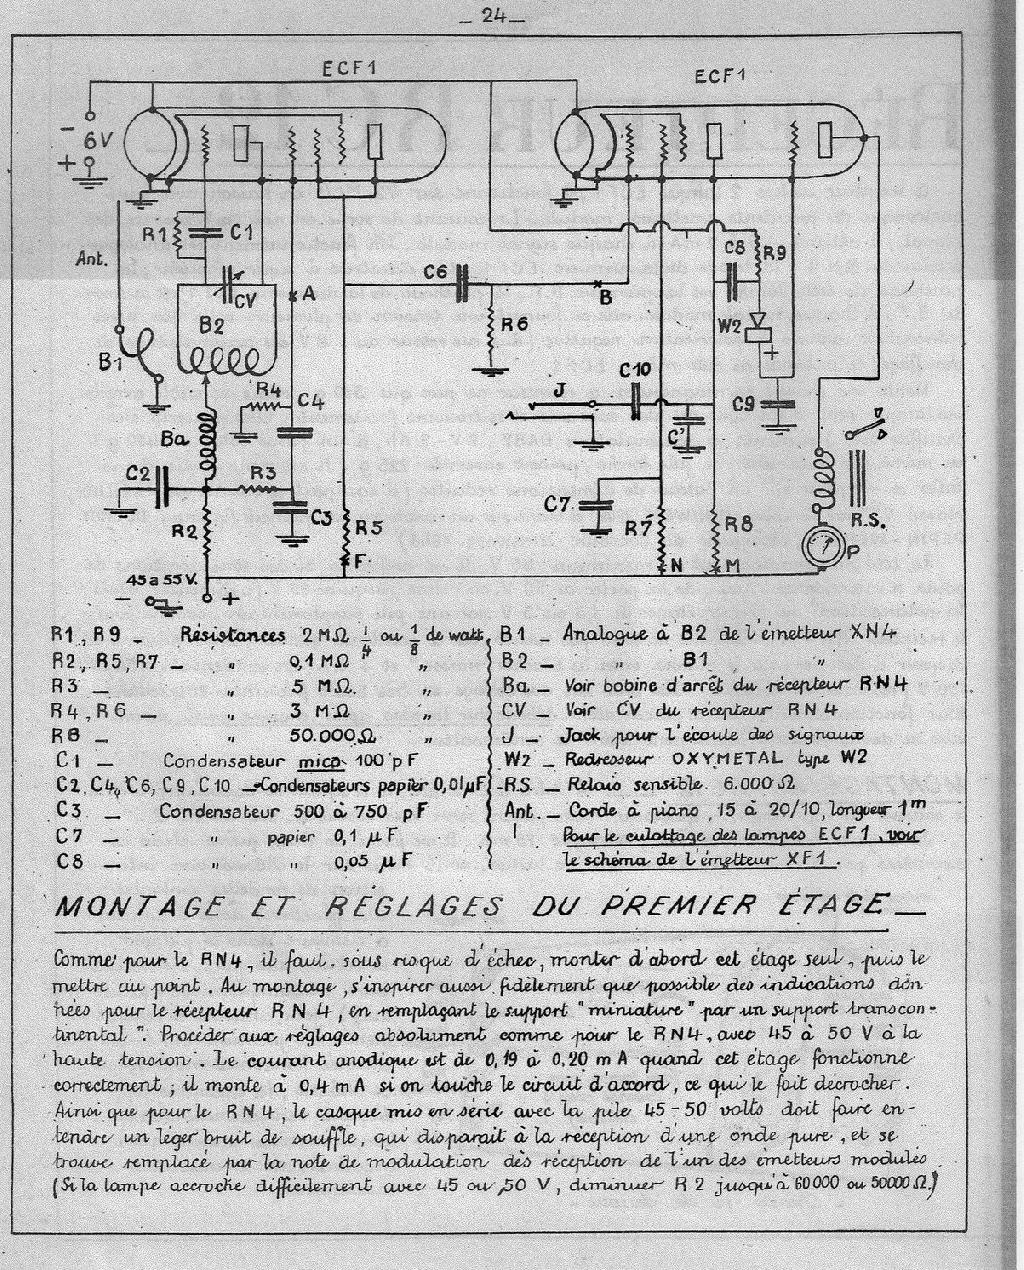 _ 24 _
ECF1
ECF1
- 6V +
R1
C1
Ant.
CV
A
B2
B1
C6
R6
B
C8
R9
W2
+
R4
C4
Ba
C2
R3
C3
R2
R5
F
J
C10
C'
C9
C7
R7
N
R8
M
R.S.
P
45 a 55 V.
- +
R1, R9 _ Résistances 2 MΩ 1/4 ou 1/8 de watt
R2, R5, R7 _ " 0,1 MΩ "
R3 " 5 MΩ "
R4, R6 _ " 3 MΩ "
R8 _ " 50.000 Ω "
C1 _ Condensateur mica 100 pF
C2, C4, C6, C9, C10 _ Condensateurs papier 0,01 µF
C3 _ Condensateur 500 à 750 pF
C7 _ " papier 0,1 µF
C8 _ " " 0,05 µF
B1 _ Analogue à B2 de l'émetteur XN4
B2 _ " B1 "
Ba _ Voir bobine d'arrêt du récepteur RN4
CV _ Voir CV du récepteur RN4
J _ Jack pour l'écoute des signaux
W2 _ Redresseur OXYMETAL type W2
R.S. _ Relais sensible 6.000 Ω
Ant. _ Corde à piano, 15 à 20/10, longueur 1m
Pour le culottage des lampes ECF1, voir
le schéma de l'émetteur XF1.
MONTAGE ET RÉGLAGES DU PREMIER ÉTAGE _
Comme pour le RN4, il faut, sous risque d'échec, monter d'abord cet étage seul, puis le
mettre au point. Au montage, s'inspirer aussi fidèlement que possible des indications don-
nées pour le récepteur RN4, en remplaçant le support "miniature" par un support transcon-
tinental". Procéder aux réglages absolument comme pour le RN4, avec 45 à 50 V à la
haute tension. Le courant anodique est de 0,19 à 0,20 mA quand cet étage fonctionne
correctement; il monte à 0,4 mA si on touche le circuit d'accord, ce qui le fait décrocher.
Ainsi que pour le RN4, le casque mis en série avec la pile 45-50 volts doit faire en-
tendre un léger bruit de souffle, qui disparait à la réception d'une onde pure, et se
trouve remplacé par la note de modulation dès réception de l'un des émetteurs modulés
(Si la lampe accroche difficilement avec 45 ou 50 V, diminuer R2 jusqu'à 60000 ou 50000 Ω.)